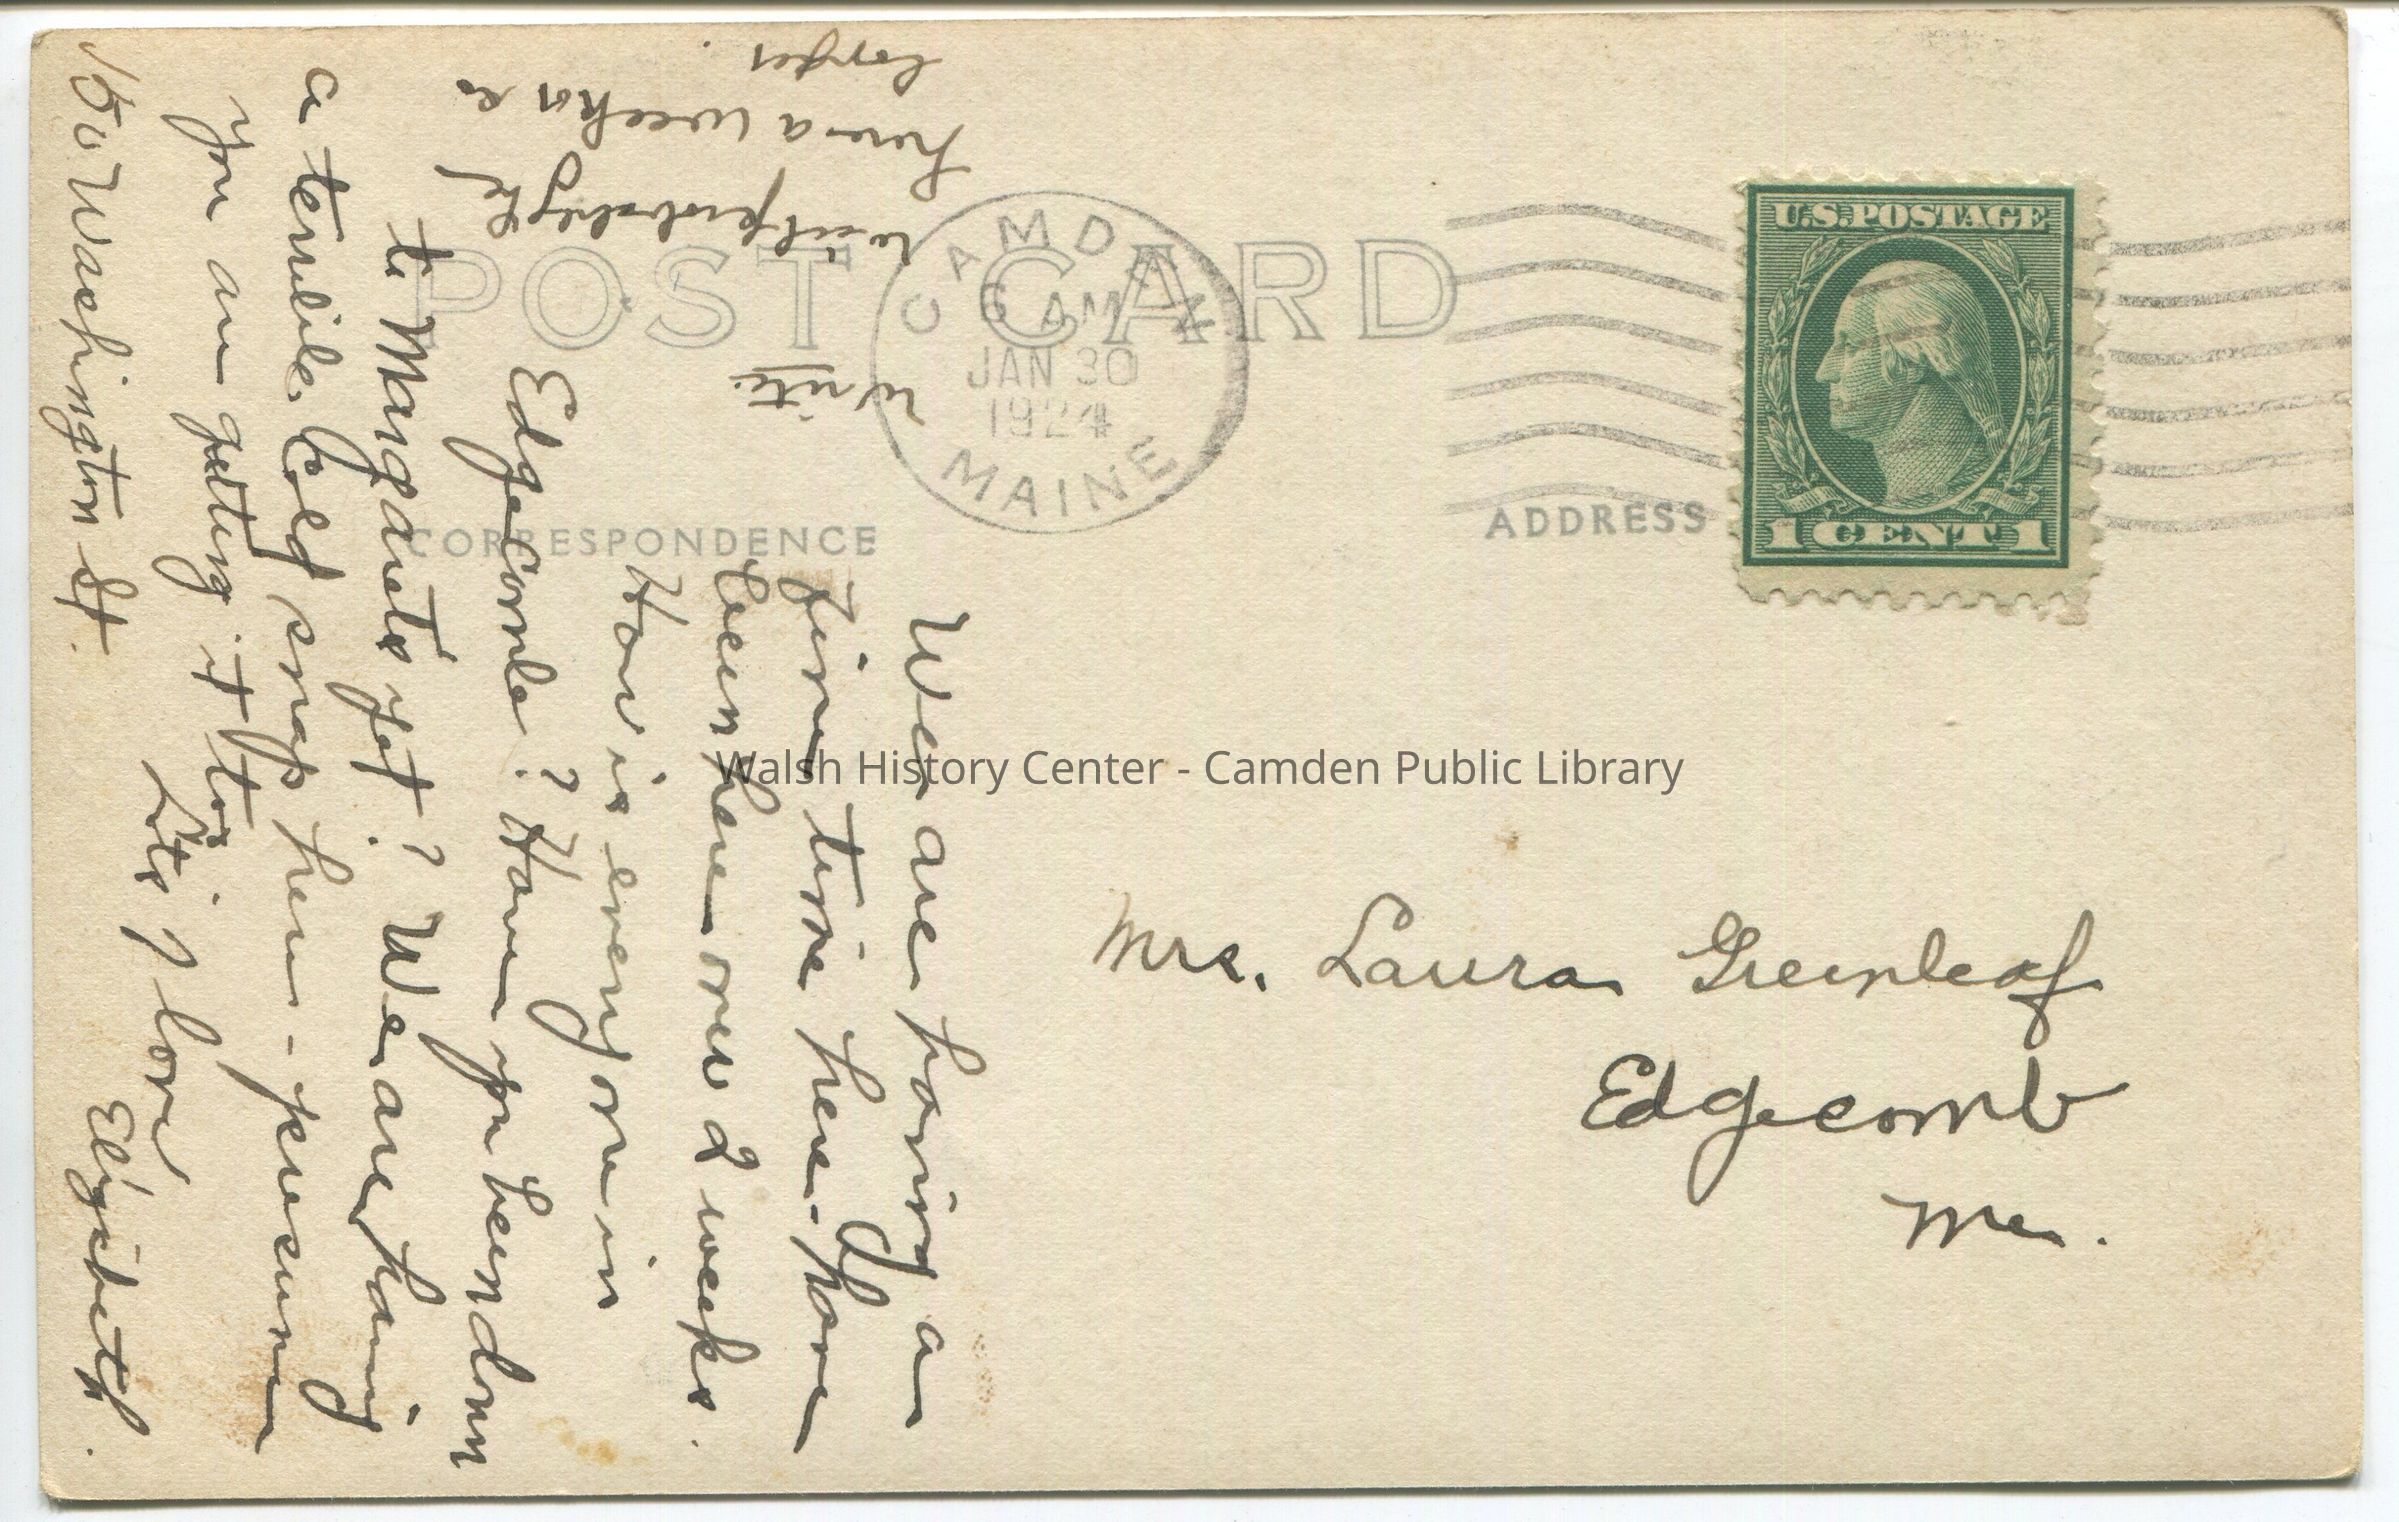 POST CARD
CAMDEN
6 AM
JAN 30
1924
MAINE
U.S. POSTAGE
1 CENT 1
CORRESPONDENCE
ADDRESS
We are having a
fine time here. Have
been here over 2 weeks.
How is everyone in
Edgecomb? Have you been down
to Margarets yet? We are having
a terrible cold snap here - presume
you are getting it too.
Lots of love
Elizabeth.
150 Washington St.
write.
will probably be
here a week or so
longer.
Mrs. Laura Greenleaf
Edgecomb
Me.
Walsh History Center - Camden Public Library